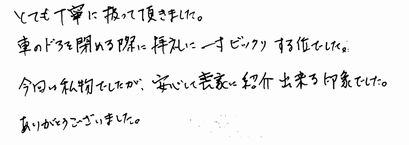 とても丁寧に扱って頂きました。
車のドアを閉める際に拝礼に一寸ビックリする位でした。
今回は私物でしたが、安心して喪家に紹介出来る印象でした。
ありがとうございました。